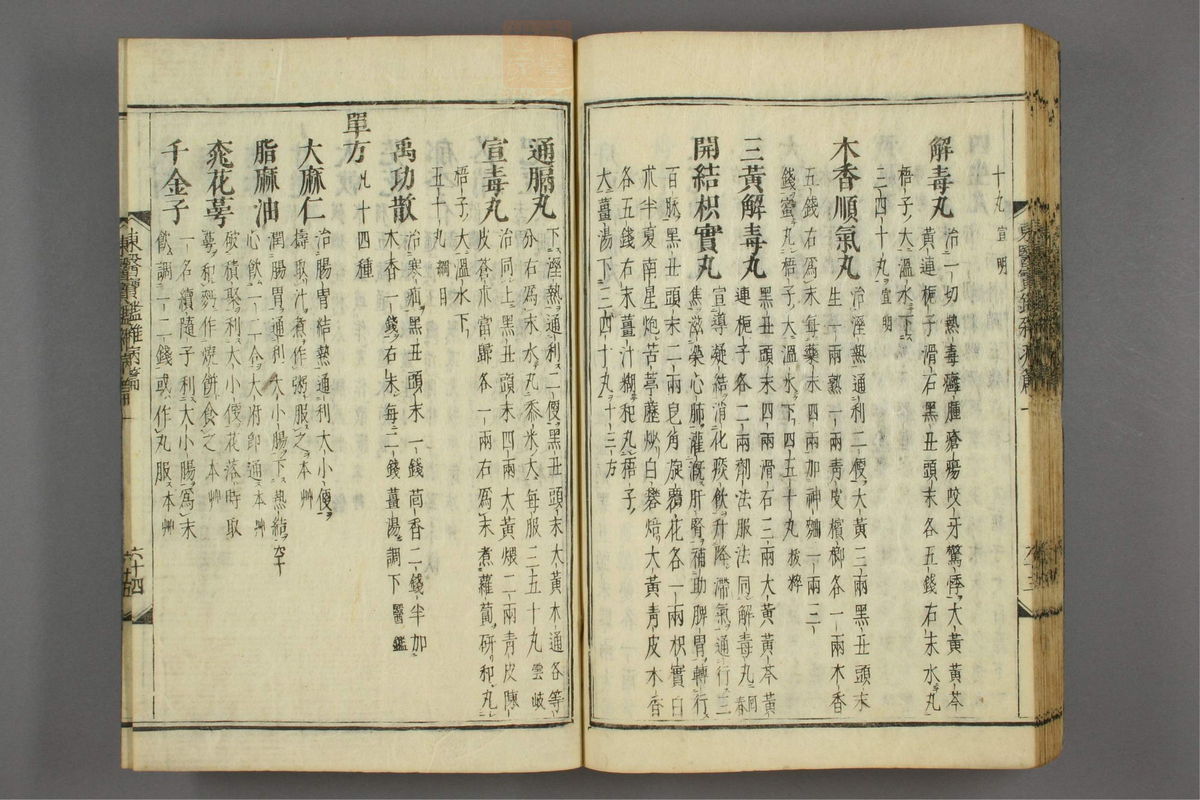 十丸宣明
解毒丸治一切熱毒癰腫瘡瘍咬牙驚悸大黃黃芩
黃連梔子滑石黑丑頭末各五錢右末水丸
梧子大溫水下
三四十丸宣明
木香順氣丸治濕熱通利二便大黃三兩黑丑頭末
生一兩熟一兩靑皮檳榔各一兩木香
五錢右爲末每藥末四兩加神麴一兩二
錢蜜丸梧子大溫水下四五十丸拔粹
三黃解毒丸黑丑頭末四兩滑石三兩大黃黃芩黃
連梔子各二兩劑法服法同解毒丸回春
開結枳實丸宣導凝結消化痰飮升降滯氣通行三
焦滋榮心肺灌漑肝腎補助脾胃轉行
百脉黑丑頭末二兩皂角旋覆花各一兩枳實白
朮半夏南星炮苦葶藶炒白礬焙大黃靑皮木香
各五錢右末薑汁糊和丸梧子
大薑湯下三四十丸十三方
東醫寶鑑雜病篇一
通膈丸下濕熱通利二便黑丑頭末大黃木通各等
分右爲末水丸黍米大每服三五十丸雲岐
宣毒丸治同上黑丑頭末四兩大黃煨二兩靑皮陳
皮蒼朮當歸各一兩右爲末煮蘿蔔硏和丸
梧子大溫水下
五十丸綱目
禹功散治寒疝黑丑頭末一錢茴香二錢半加
木香一錢右末每二錢薑湯調下醫鑑
單方凡十四種
大麻仁治腸胃結熱通利大小便
擣取汁煮作粥服之本艸
脂麻油潤腸胃通利大小腸下熱結空
心飮一二合大府卽通本艸
桃花蕚破積聚利大小便花落時取
蕚和麪作燒餠食之本艸
千金子一名續隨子利大小腸爲末
飮調一二錢或作丸服本艸
東醫寶鑑雜病篇一
六十四